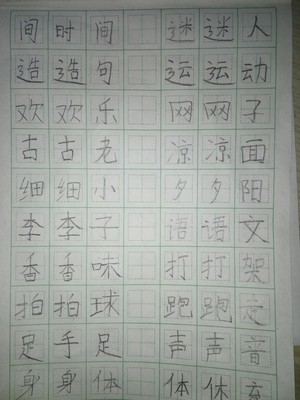 间时间 迷迷人
造造句 运运动
欢欢乐 网网子
古古老 凉凉面
细细小 夕夕阳
李李子 语语文
香香味 打打架
拍拍球 跑跑走
足手足 声声音
身身体 体体育